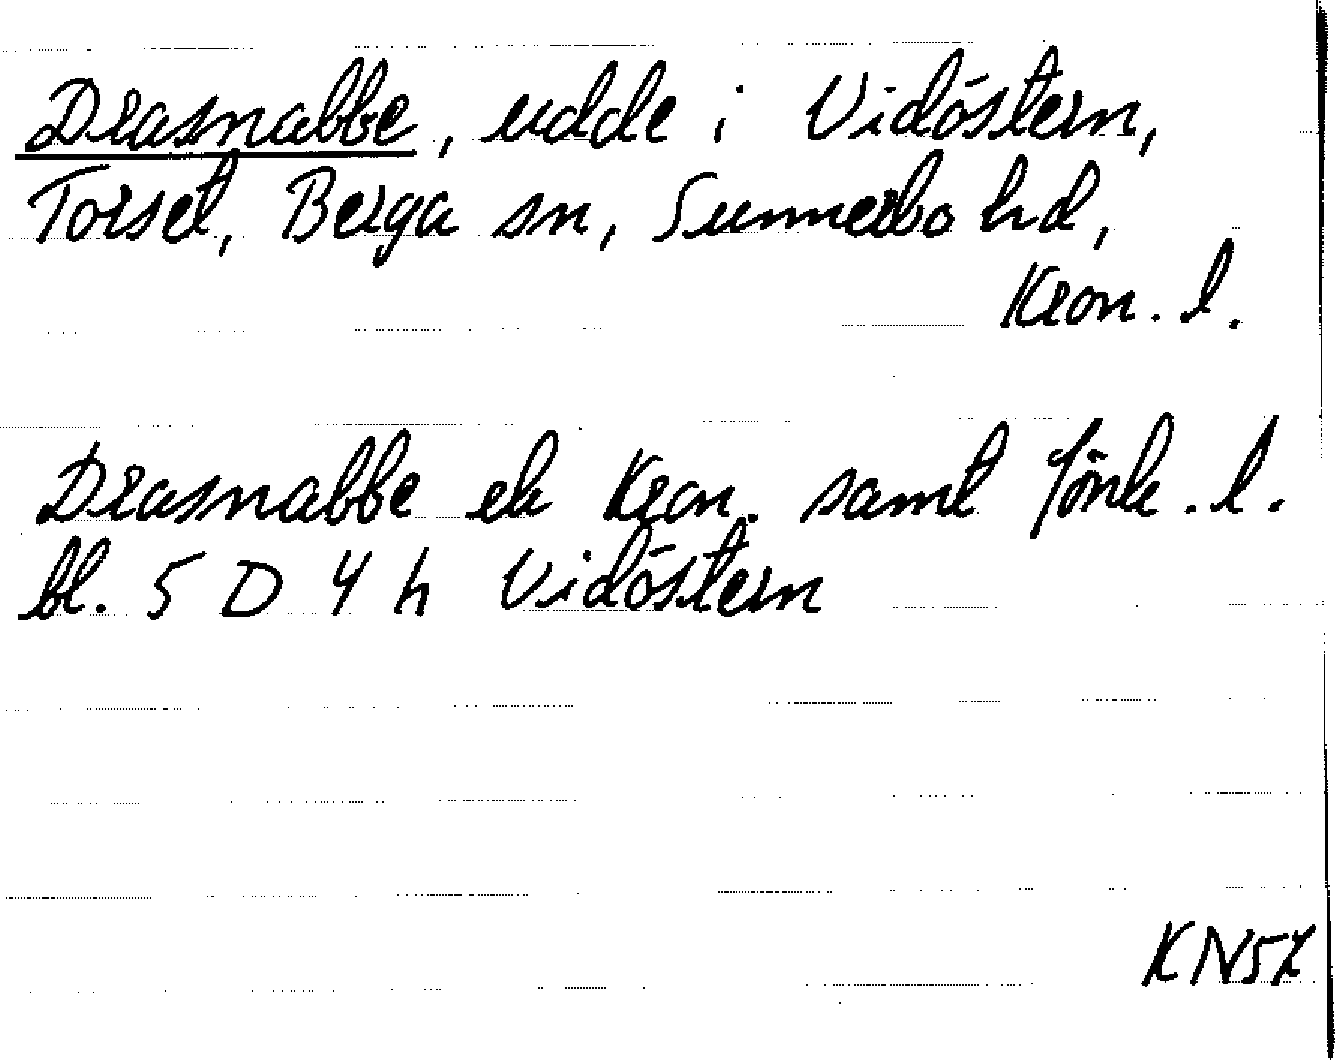 Drasnabbe, udde i Vidöstern,
Torset, Berga sn, Sunnerbo hd,
Kron. l.
Drasnabbe ek Kron. samt Jönk. l.
bl. 5 D 4 h Vidöstern